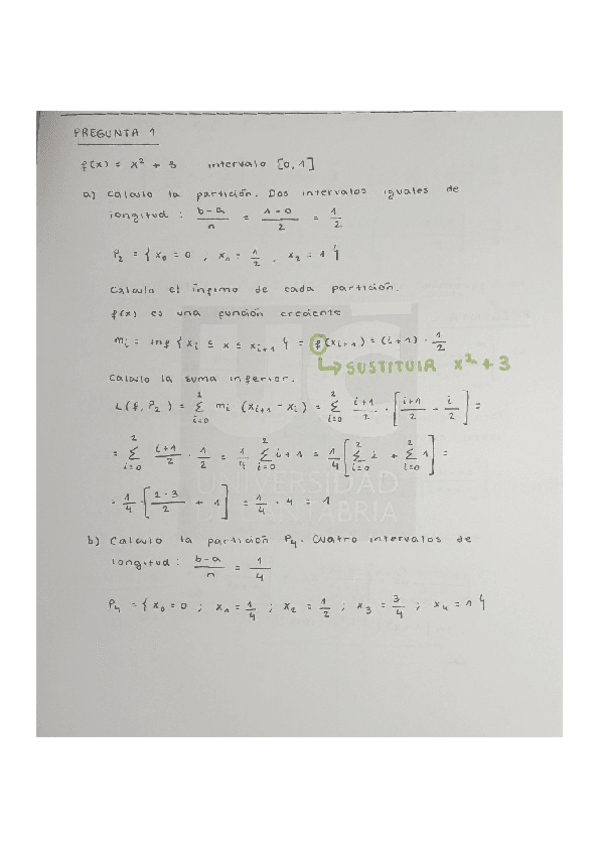 PREGUNTA 1
f(x) = x² + 3 intervalo [0,1]
a) Calculo la partición. Dos intervalos iguales de
longitud: (b-a)/n = (1-0)/2 = 1/2
P₂ = { x₀ = 0 , x₁ = 1/2 , x₂ = 1 }
Calculo el ínfimo de cada partición.
f(x) es una función creciente
mᵢ = inf { xᵢ ≤ x ≤ xᵢ₊₁ } = f(xᵢ₊₁) = (i+1) · 1/2
↳ SUSTITUIR x² + 3
Calculo la suma inferior.
L(f, P₂) = Σ_{i=0}^{2} mᵢ (xᵢ₊₁ - xᵢ) = Σ_{i=0}^{2} (i+1)/2 · [(i+1)/2 - i/2] =
= Σ_{i=0}^{2} (i+1)/2 · 1/2 = 1/4 Σ_{i=0}^{2} i+1 = 1/4 [Σ_{i=0}^{2} i + Σ_{i=0}^{2} 1] =
= 1/4 · [(2·3)/2 + 1] = 1/4 · 4 = 1
UNIVERSIDAD
DE CANTABRIA
b) Calculo la partición P₄. Cuatro intervalos de
longitud: (b-a)/n = 1/4
P₄ = { x₀ = 0 ; x₁ = 1/4 ; x₂ = 1/2 ; x₃ = 3/4 ; x₄ = 1 }